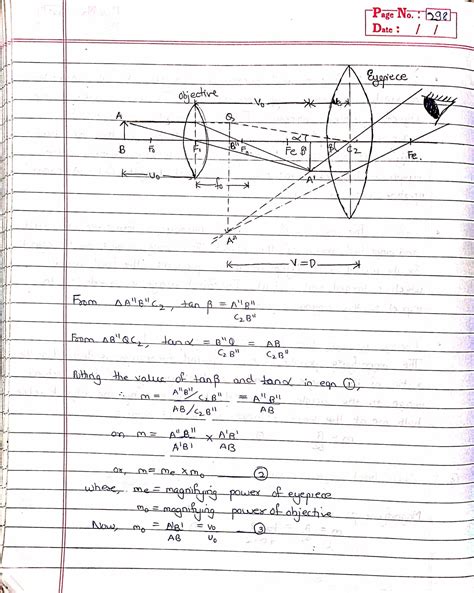 Page No. : 298
Date : / /
Eyepiece
objective
V₀
A
Q
α
B
F₀
B"
F₂
Fe
B'
C₂
Fe.
u₀
f₀
A'
A"
V = D
From ΔA"B"C₂, tan β = A"B" / C₂B"
From ΔB"QC₂, tanα = B"Q / C₂B" = AB / C₂B"
Putting the value of tanβ and tanα in eqn ①,
∴ m = A"B"/C₂B" / AB/C₂B" = A"B" / AB
or, m = A"B" / A'B' × A'B' / AB
or, m = me × m₀ ②
where, me = magnifying power of eyepiece
m₀ = magnifying power of objective
Now, m₀ = A'B' / AB = V₀ / u₀ - ③